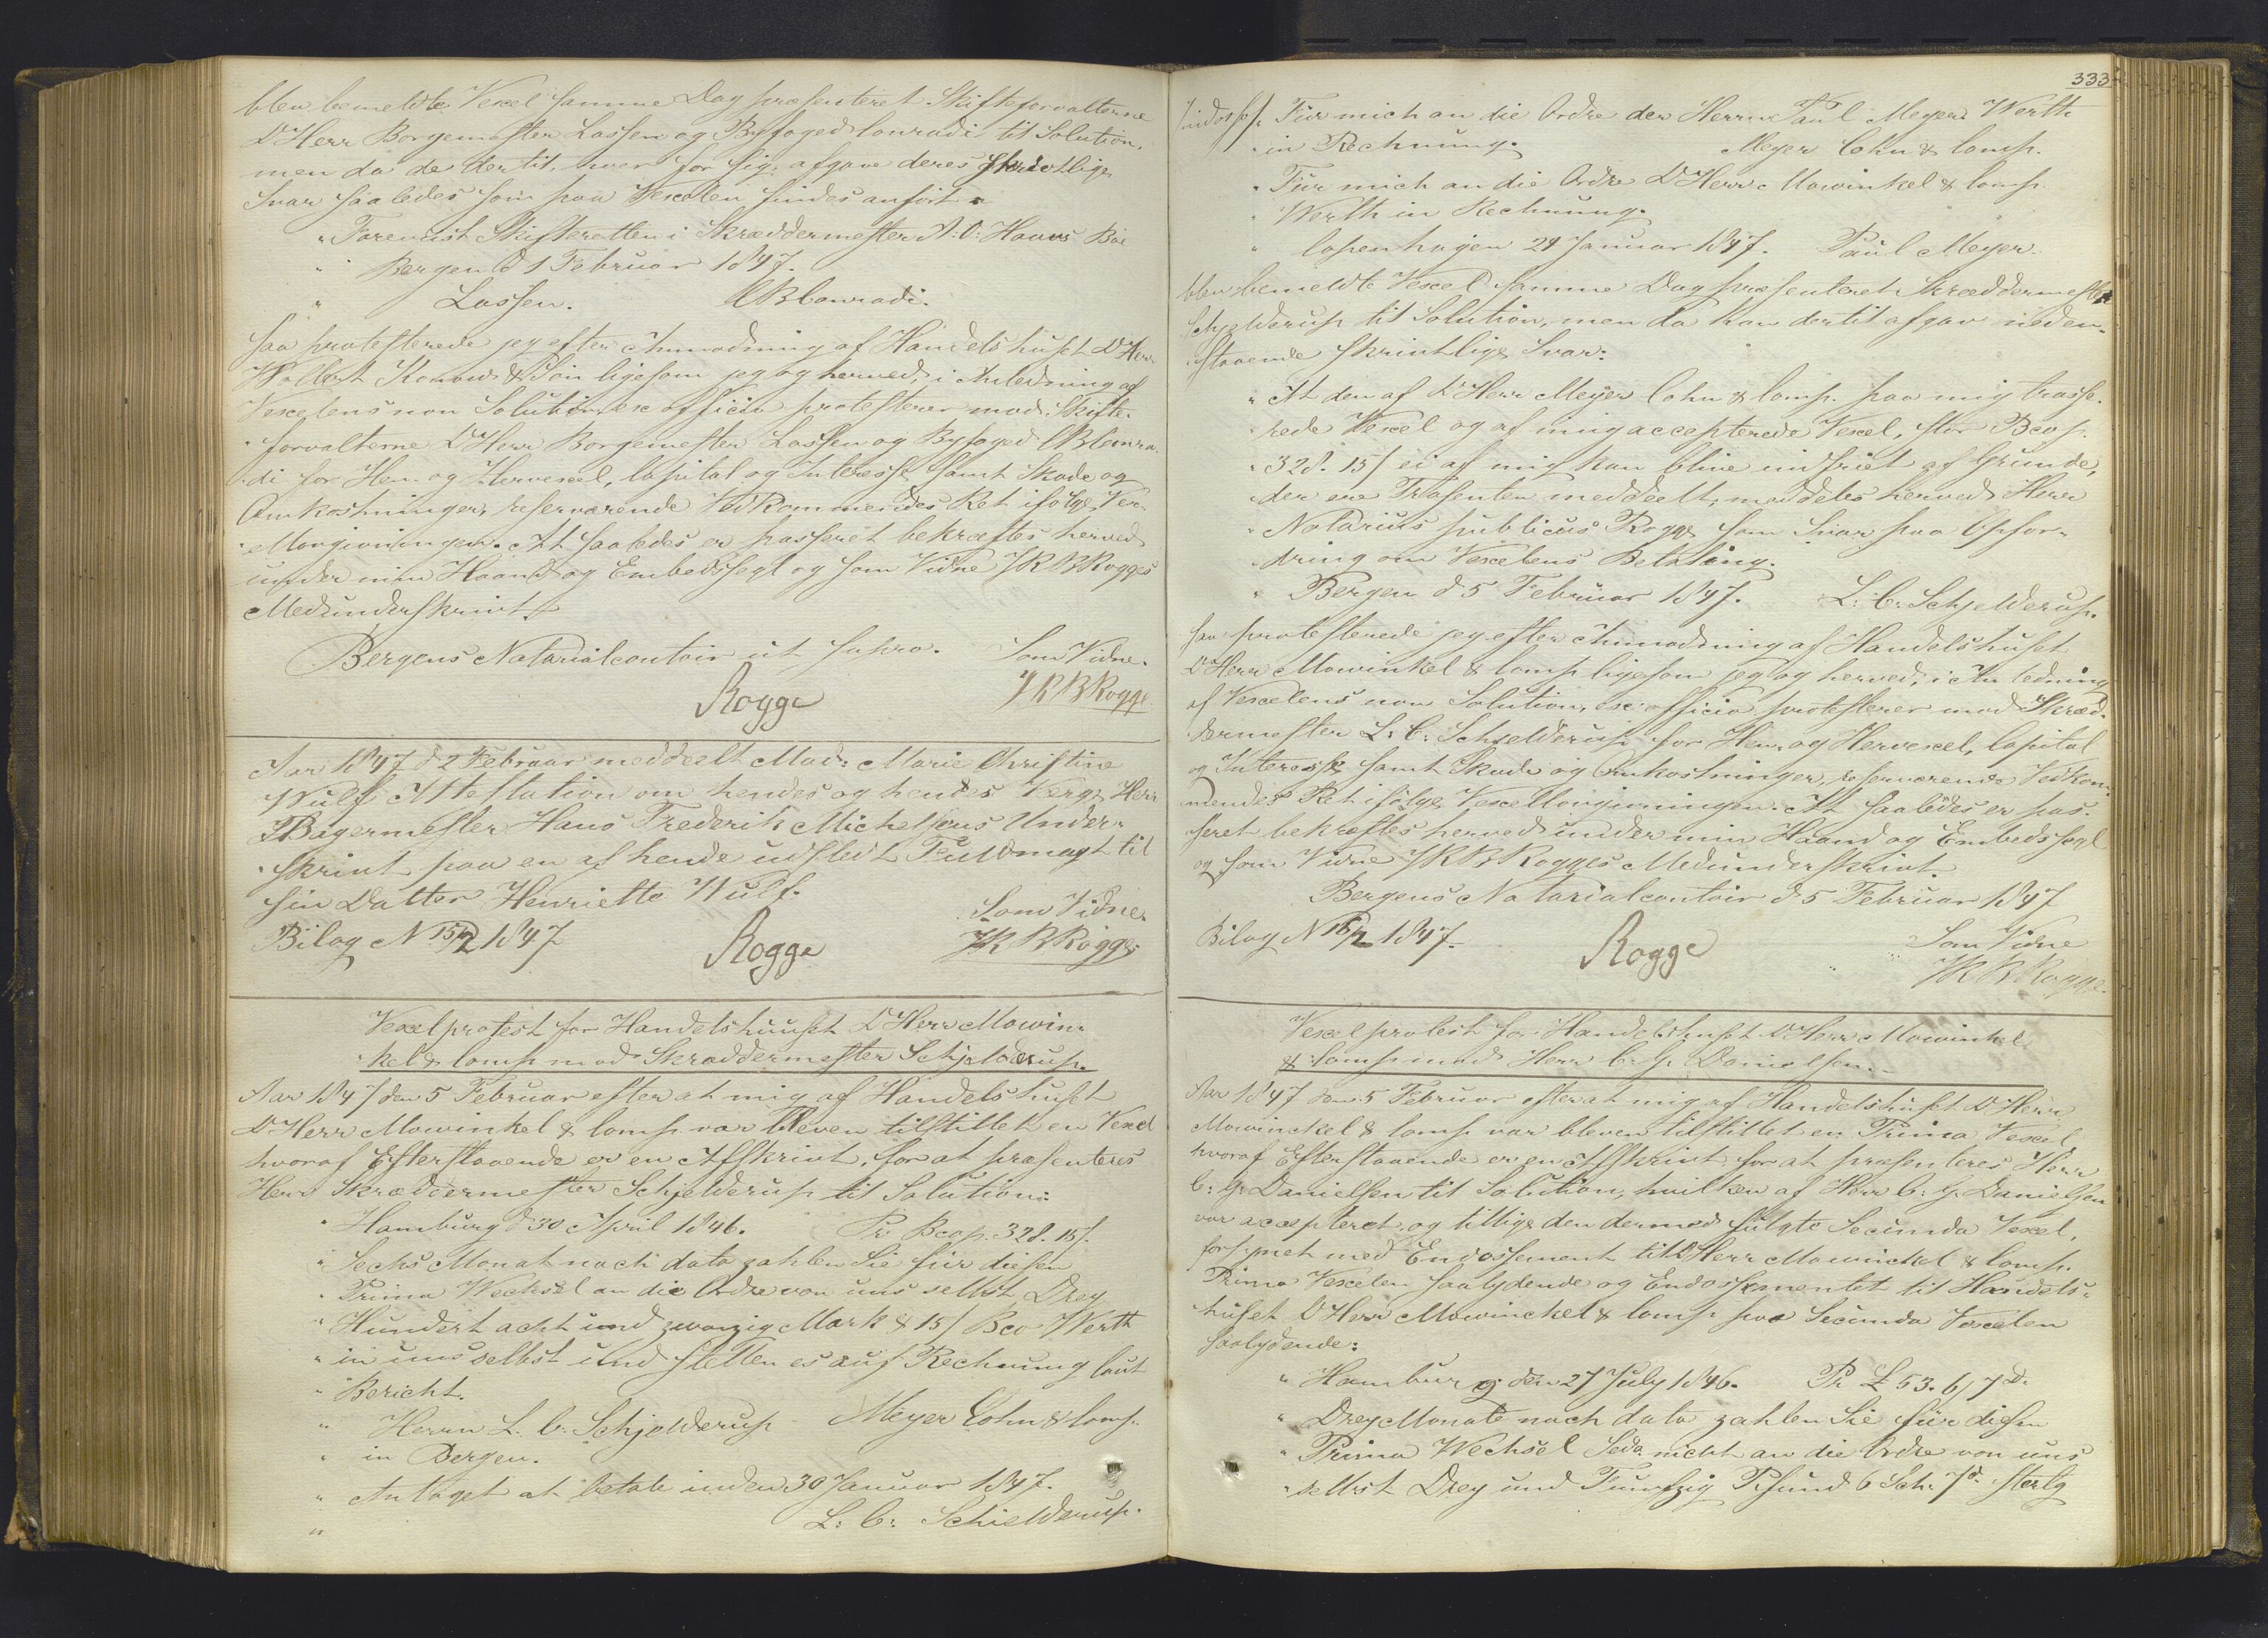 blev bemeldte Vexel samme Dag præsenteret Skifteforvalterne
D'Herr Borgemester Lassen og Byfoged Conradi til Solution,
men da de dertil, hver for sig, afgave deres skrivtlige
Svar saaledes som paa Vexelen findes anført
" Forevist Skifteretten i Skræddermester A: O: Haaws Boe
" Bergen d 1 Februar 1847.
" Lassen. CBConradi.
saa protesterede jeg efter Anmodning af Handelshuset D'Herr
Wollert Konow & Søn ligesom jeg og herved, i Anledning af
Vexelens non Solution, ex officio protesterer mod Skifte-
forvalterne D'Herr Borgemester Lassen og Byfoged CBConra-
di for Hen- og Hervexel, Capital og Interesse, samt Skade og
Omkostninger, reserverende Vedkommendes Ret ifølge Vex-
ellovgivningen. At saaledes er passeret bekræftes herved
under min Haand og Embedssegl og som Vidne JKBRogges
Medunderskrivt.
Bergens Notarialcontoir ut supra. Som Vidne.
Rogge JKBRogge
Aar 1847 d 2 Februar meddeelt Mad: Marie Christine
Wulf Attestation om hendes og hendes Verge Herr
Bagermester Hans Frederik Michelsens Under-
skrivt paa en af hende udstedt Fuldmagt til
sin Datter Henriette Wulf.
Som Vidne
Bilag N 15/2 1847 Rogge JKBRogge
Vexelprotest for Handelshuuset D'Herr Mowin-
kel & Comp mod Skræddermester Schjelderup.
Aar 1847 den 5 Februar efterat mig af Handelshuset
D'Herr Mowinkel & Comp. var bleven tilstillet en Vexel
hvoraf Efterstaaende er en Afskrivt, for at præsenteres
Herr Skræddermester Schjelderup til Solution:
" Hamburg d 30 April 1846. Pr Bcop. 328. 15/.
" Sechs Monat nach dato zahlen Sie für diesen
" Prima Wechsel an die Ordre von uns selbst Drey
" Hundert acht und zwanzig Mark & 15/ Bco Werth
" in uns selbst und stellen es auf Rechnung laut
" Bericht.
" Herrn L. C. Schjelderup Meyer Cohn & Comp.
" in Bergen.
" Antaget at betale inden 30 Januar 1847.
" L: C: Schielderup.
333
Indoss/. Für mich an die Ordre der Herrn Paul Meyer Werth
" in Rechnung. Meyer Cohn & Comp.
" Für mich an die Ordre D'Herr Mowinkel & Comp.
" Werth in Rechnung.
" Copenhagen 29 Januar 1847. Paul Meyer.
blev bemeldte Vexel samme Dag præsenteret Skræddermester
Schjelderup til Solution, men da han dertil afgav neden-
staaende skrivtlige Svar:
" At den af D'Herr Meyer Cohn & Comp. paa mig trasse-
" rede Vexel og af mig accepterede Vexel, stor Bco p.
" 328. 15/ ei af mig kan blive indfriet af Grunde,
" der ere Trasenten meddeelt, meddeles herved Herr
" Notarius publicus Rogge som Svar paa Opfor-
" dring om Vexelens Betaling.
" Bergen d 5 Februar 1847. L: C: Schjelderup.
saa protesterede jeg efter Anmodning af Handelshuset
D'Herr Mowinkel & Comp ligesom jeg og herved, i Anledning
af Vexelens non Solution, ex officio protesterer mod Skræd-
dermester L: C: Schjelderup for Hen- og Hervexel, Capital
og Interesse, samt Skade og Omkostninger, reserverende Vedkom-
mendes Ret ifølge Vexellovgivningen. At saaledes er pas-
seret bekræftes herved under min Haand og Embedssegl
og som Vidne JKBRogges Medunderskrivt.
Bergens Notarialcontoir d 5 Februar 1847
Bilag N 16/2 1847. Rogge Som Vidne
JKBRogge.
Vexelprotest for Handelshuset D'Herr Mowinkel
& Comp mod Herr C. G. Danielsen.
Aar 1847 den 5 Februar efterat mig af Handelshuset D'Herr
Mowinckel & Comp. var bleven tilstillet en Prima Vexel,
hvoraf Efterstaaende er en Afskrivt, for at præsenteres Herr
C: G. Danielsen til Solution, hvilken af Herr C: G. Danielsen
var accepteret, og tillige den dermed fulgte Secunda Vexel,
forsynet med Endossement til D'Herr Mowinckel & Comp.
Prima Vexelen saalydende og Endossementet til Handels-
huset D'Herr Mowinckel & Comp paa Secunda Vexelen
saalydende:
" Hamburg den 27 July 1846. Pr £ 53. 6/ 7 d.
" Drey Monate nach dato zahlen Sie für diesen
" Prima Wechsel Seda nicht an die Ordre von uns
" selbst Drey und Funfzig Pfund 6 Sch. 7 d. sterlg